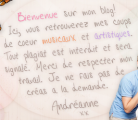 Bienvenue sur mon blog!
Ici, vous retrouverez mes coups
de coeur musicaux et artistiques.
Tout plagiat est interdit et sera
signalé. Merci de respecter mon
travail. Je ne fais pas de
créas à la demande.
Andréanne
xx